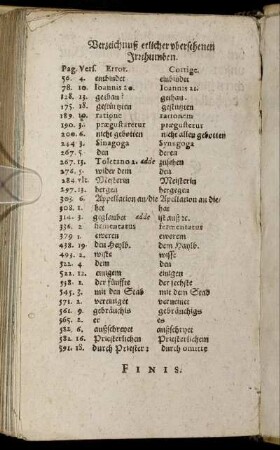 Verzeichnuß etlicher vbersehenen
Jrrthumben.
Pag. Vers. Error. Corrige.
56. 4. embindet einbindet
78. 10. Ioannis 20. Ioannis 21.
128. 13. gethau? gethan.
175. 18. gestuͤtzten
189. 10. ratione rationem
190. 3. præguſtaretur præguſtetur
200. 6. nicht gebotten nicht allen gebotten
244. 3. Sinagoga Synagoga
267. 5. den deren
267. 13. Toletino 2. adde zusehen
276. 5. wider dem den
284. vlt. Meisterin
297. 13. bergen hergegen
303. 6. Appellation an/die Apellation an die/
308. 1. hat her
314. 3. geglaubet adde ist auß ꝛc.
336. 2 fermentarius
379 1. eweren ewerem
438. 19. den Haylb. dem Haylb.
493. 2. wiste wisse
522. 4 dem den
521. 12. einigem einigen
538. 1. der fünffte der sechste
545. 3. mit den Stab mit dem Stab
571. 2. vereiniget verneinet
561. 9. gebräuchis gebräuchigs
565. 2. er es
582. 6. außschreyet außschryet
582. 16. Priesterlichen Priesterlichem
591. 18. durch Priester: durch omitte
FINIS.